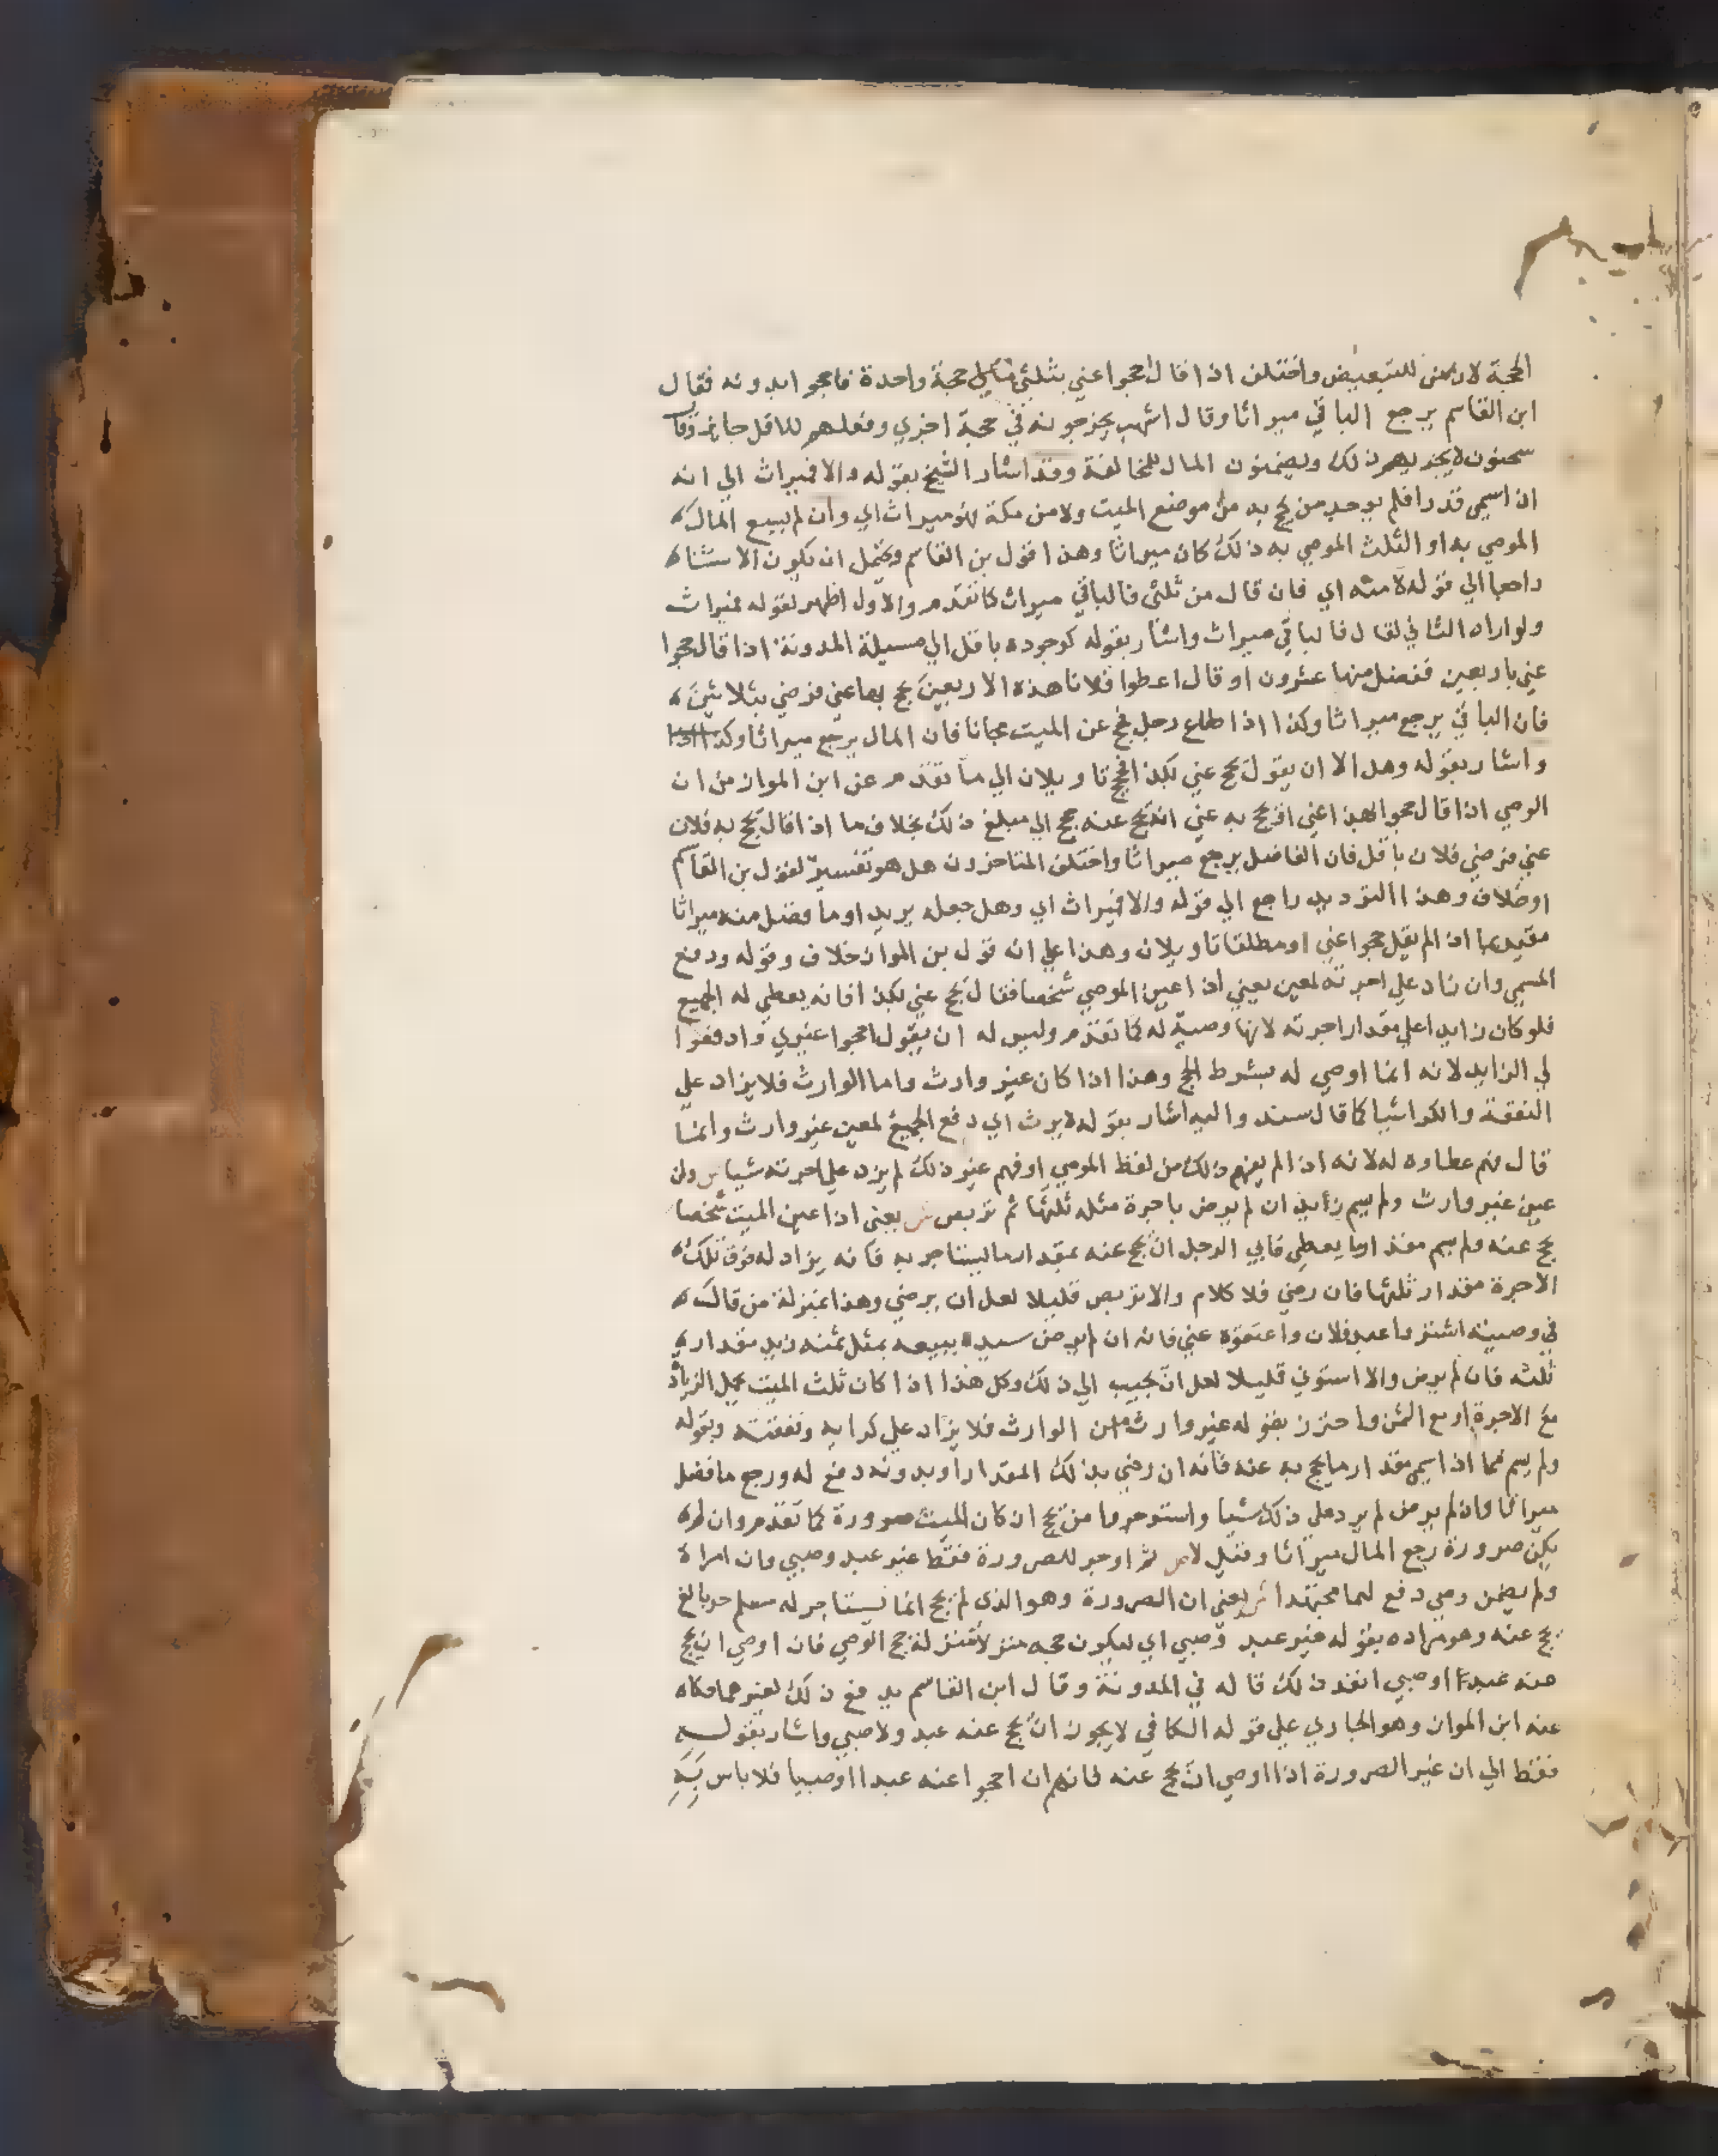 الحجة لان من للتبعيض واختلف اذا قال حجوا عني بثلثي حجة واحدة فاحجوا بدونه فقال
ابن القاسم يرجع الباقي ميراثا وقال اشهب يخرجونه في حجة اخري وفعلهم للاقل جايز وقال
سحنون لا يجزيهم ذلك ويضمنون المال للمخالفة وقد اشار الشيخ بقوله والا فميراث الي انه
ان اسمي قدرا فلم يوجد من يحج به من موضع الميت ولا من مكة فهو ميراث اي وان لم يسع المال
الموصي به او الثلث الموصي به ذلك كان ميراثا وهذا قول بن القاسم ويحتمل ان يكون الاستثناء
راجعا الي قوله لا منه اي فان قال من ثلثي فالباقي ميراث كما تقدم والاول اظهر لقوله فميراث
ولو اراد الثاني لقال فالباقي ميراث واشار بقوله كوجوده باقل الي مسيلة المدونة اذا قال حجوا
عني باربعين ففضل منها عشرون او قال اعطوا فلانا هذه الاربعين يحج بها عني فرضي بثلاثين
فان الباقي يرجع ميراثا وكذا اذا طاع رجل فحج عن الميت مجانا فان المال يرجع ميراثا وكذا اذا
واشار بقوله وهل الا ان يقول يحج عني بكذا فحج تاويلان الي ما تقدم عن ابن المواز من ان
الوصي اذا قال حجوا بهذا عني او يحج به عني انه يحج عنه حجج الي مبلغ ذلك بخلاف ما اذا قال يحج به فلان
عني فرضي فلان باقل فان الفاضل يرجع ميراثا واختلف المتاخرون هل هو تفسير لقول بن القاسم
او خلاف وهذا الترديد راجع الي قوله والا فميراث اي وهل جعله يريد او ما فضل منه ميراثا
مقيد بما اذا لم يقل حجوا عني او مطلقا تاويلان وهذا علي انه قول بن المواز خلاف وقوله ودفع
المسمي وان زاد علي اجرته لمعين يعني اذا عين الموصي شخصا فقال يحج عني بكذا فانه يعطي له الجميع
فلو كان زايدا علي مقدار اجرته لانها وصية له كما تقدم وليس له ان يقول احجوا غيري وادفعوا
لي الزايد لانه انما اوصي له بشرط الحج وهذا اذا كان غير وارث واما الوارث فلا يزاد علي
النفقة والكرا شيا كما قال سند واليه اشار بقوله لا يرث اي دفع الجميع لمعين غير وارث وانما
قال فهم عطاوه له لانه اذا لم يفهم ذلك من لفظ الموصي او فهم غير ذلك لم يزد علي اجرته شيا ص وان
عين غير وارث ولم يسم زيد ان لم يرض باجرة مثله ثلثها ثم تربص ش يعني اذا عين الميت شخصا
يحج عنه ولم يسم مقدار ما يعطي فابي الرجل ان يحج عنه بمقدار ما يستاجر به فانه يزاد له فوق تلك
الاجرة مقدار ثلثها فان رضي فلا كلام والا تربص قليلا لعل ان يرضي وهذا بمنزلة من قال
في وصيته اشتروا عبد فلان واعتقوه عني فانه ان لم يرض سيده ببيعه بمثل ثمنه زيد مقدار
ثلثه فان لم يرض والا استوني قليلا لعل ان يجيب الي ذلك وكل هذا اذا كان ثلث الميت يحمل الزيادة
مع الاجرة او مع الثمن واحترز بقوله غير وارث من الوارث فلا يزاد علي كرايه ونفقته وبقوله
ولم يسم مما اذا سمي مقدار ما يحج به عنه فانه ان رضي بذلك المقدار او بدونه دفع له ورجع ما فضل
ميراثا وان لم يرض لم يرد علي ذلك شيا واستوجروا من يحج ان كان الميت صرورة كما تقدم وان لم
يكن صرورة رجع المال ميراثا وقيل لا ص ثم اوجر للصرورة فقط غير عبد وصبي وان امراة
ولم يضمن وصي دفع لهما مجتهدا ش يعني ان الصرورة وهو الذي لم يحج انما يستاجر له مسلم حر بالغ
يحج عنه وهو مراده بقوله غير عبد وصبي اي ليكون حجه منزلا منزلة حج الوصي فان اوصي ان يحج
عنه عبد او صبي انفذ ذلك قاله في المدونة وقال ابن القاسم يدفع ذلك لغيرهما حكاه
عنه ابن المواز وهو الجاري علي قوله الكافي لا يجوز ان يحج عنه عبد ولا صبي واشار بقوله
فقط الي ان غير الصرورة اذا اوصي ان يحج عنه فانهم ان احجوا عنه عبدا او صبيا فلا باس به